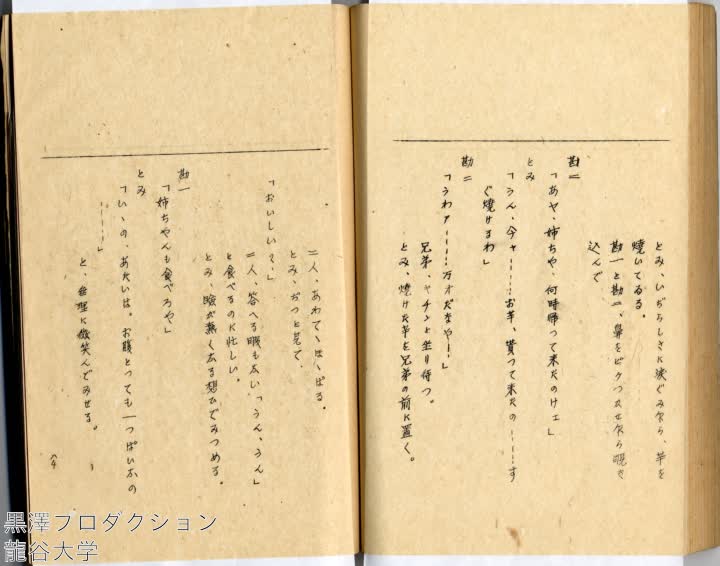 とみ、いぢらしさに涙ぐみ乍ら、芋を
焼いてゐる。
勘一と勘二、鼻をピクつかせ乍ら覗き
込んで
勘二
「あヤ、姉ちや、何時帰つて来たのけェ」
とみ
「うん、今ャ……お芋、貰つて来たの……す
ぐ焼けるわ」
勘二
「うわァ……万才だなやー」
兄弟、キチンと坐り待つ。
とみ、焼けた芋を兄弟の前に置く。
二人、あわてゝほゝばる。
とみ、ぢつと見て、
「おいしい？、」
二人、答へる暇も広い「うん、うん」
と食べるのに忙しい。
とみ、瞼が熱く広る想ひでみつめる。
勘一
「姉ちやんも食べろや」
とみ
「いゝの、あたいは。お腹とつても一つぱいな の
……」
と、無理に微笑んでみせる。
黒澤プロダクション
龍谷大学